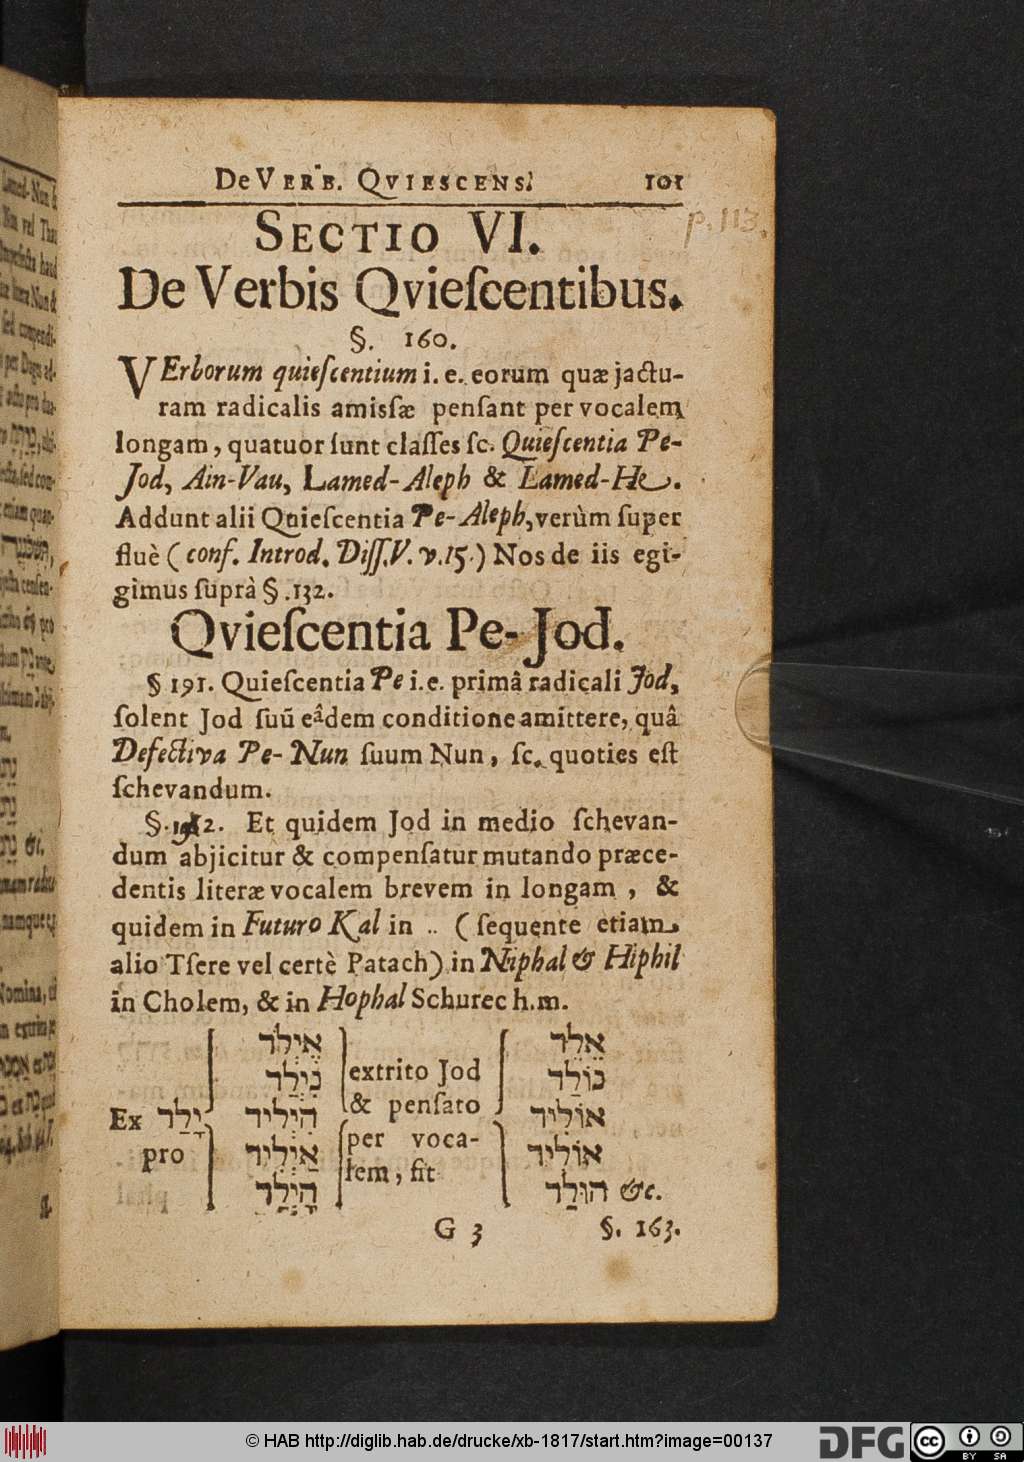 De VERB. QVIESCENS. 101
p. 113.
SECTIO VI.
De Verbis Qvieſcentibus.
§. 160.
VErborum quieſcentium i. e. eorum quæ jactu-
ram radicalis amiſſæ penſant per vocalem
longam, quatuor ſunt claſſes ſc. Quieſcentia Pe-
Jod, Ain-Vau, Lamed-Aleph & Lamed-He.
Addunt alii Quieſcentia Pe-Aleph, verùm ſuper
fluè (conf. Introd. Diſſ. V. v. 15.) Nos de iis egi-
gimus ſuprà §. 132.
Qvieſcentia Pe-Jod.
§ 191. Quieſcentia Pe i. e. primâ radicali Jod,
ſolent Jod ſuū eâdem conditione amittere, quâ
Defectiva Pe-Nun ſuum Nun, ſc. quoties eſt
ſchevandum.
§. 192. Et quidem Jod in medio ſchevan-
dum abjicitur & compenſatur mutando præce-
dentis literæ vocalem brevem in longam, &
quidem in Futuro Kal in .. (ſequente etiam
alio Tſere vel certè Patach) in Niphal & Hiphil
in Cholem, & in Hophal Schurec h. m.
אֶיְלֹד extrito Jod אֵלֵד
נִיְלַד & penſato נוֹלַד
Ex יָלַד הִיְלִיד per voca- אוֹלִיד
pro אַיְלִיד lem, fit אוֹלִיד
הָיְלַד הוּלַד &c.
G 3 §. 163.
© HAB http://diglib.hab.de/drucke/xb-1817/start.htm?image=00137
DFG
cc BY SA